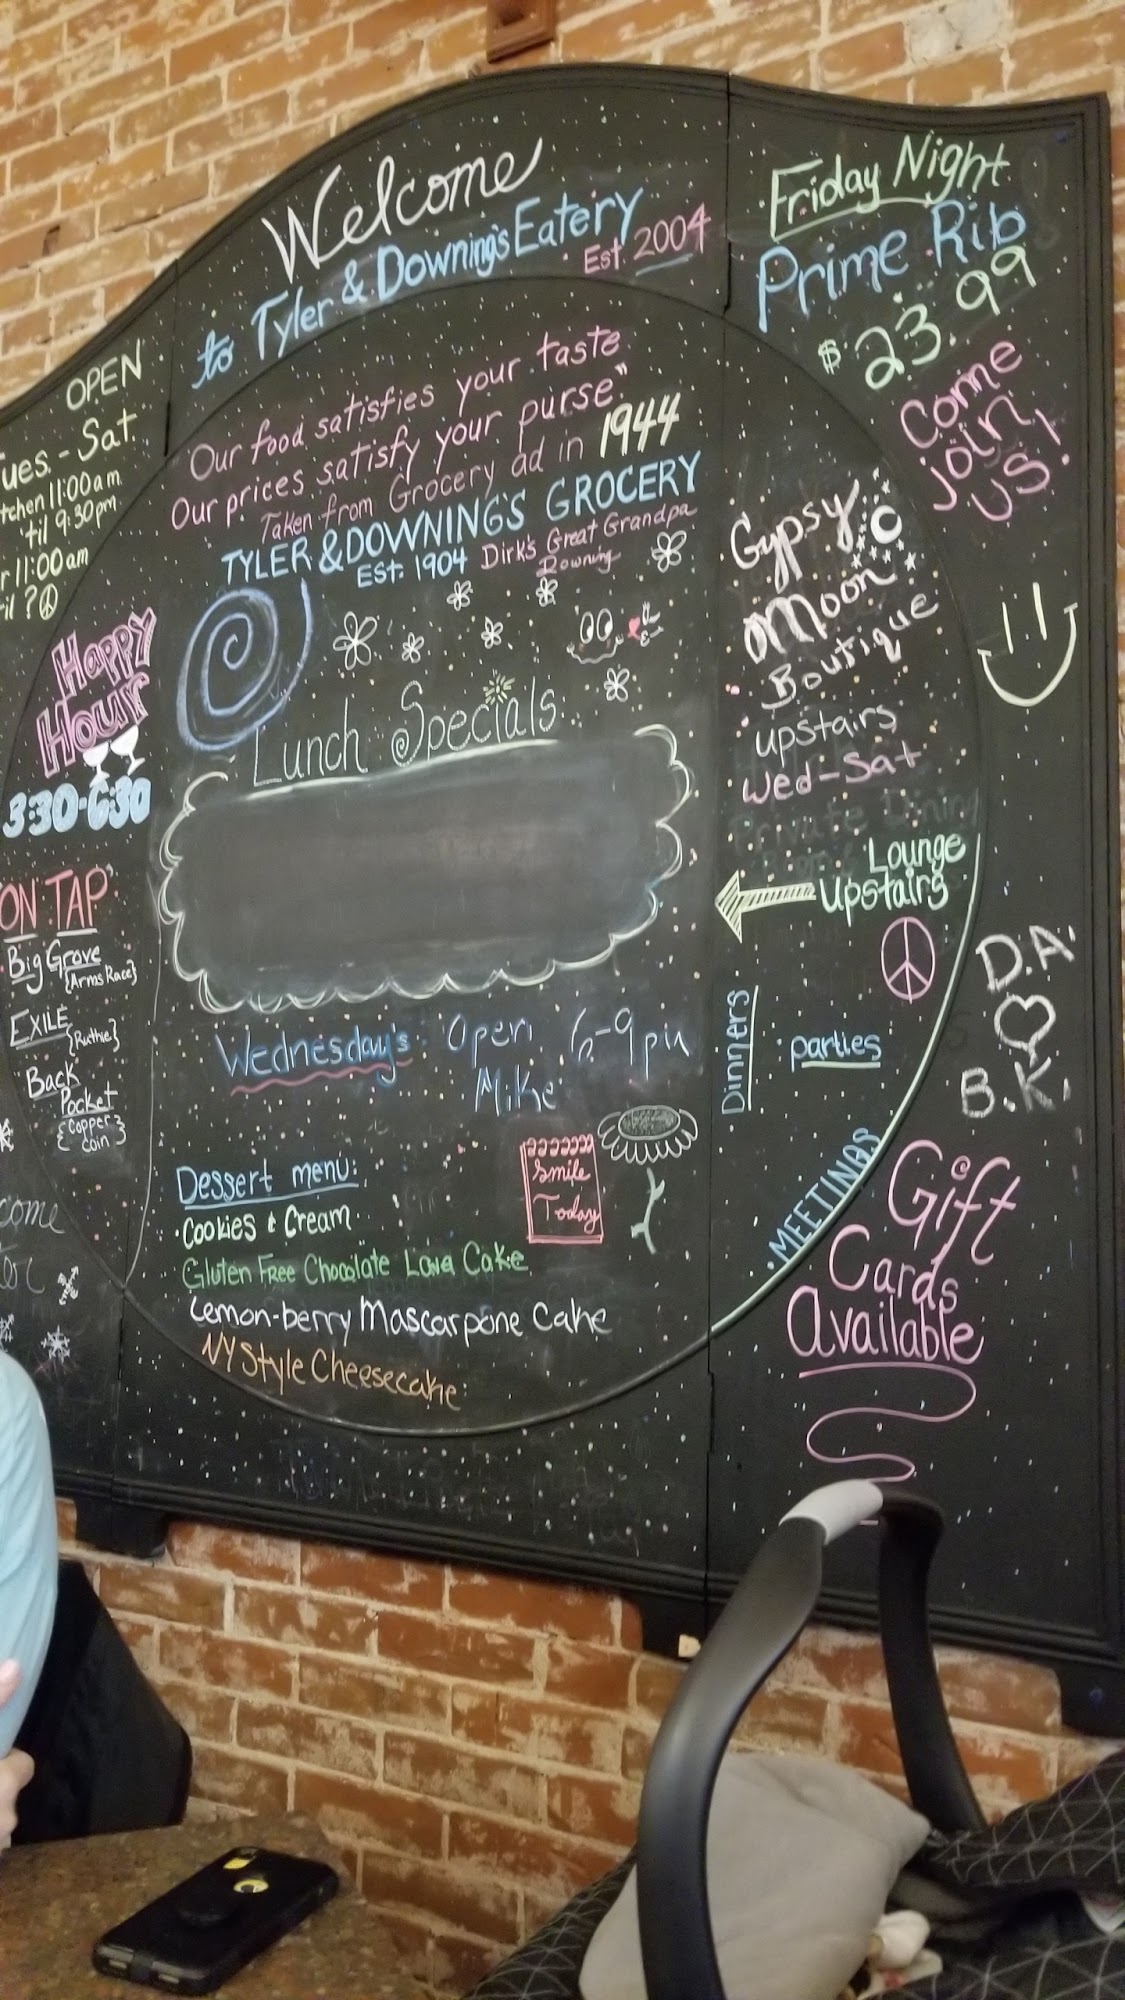 Welcome
to Tyler & Downing's Eatery
Est. 2004
OPEN
Tues. - Sat.
11:00am
til 9:30pm
11:00am
?
Happy
Hour
3:30-6:30
ON TAP
Big Grove
{Arms Race}
EXILE
{Ruthie}
Back
Pocket
{Copper
Coin}
Our food satisfies your taste
Our prices satisfy your purse."
Taken from Grocery ad in 1944
TYLER & DOWNING'S GROCERY
EST. 1904 Dirk's Great Grandpa
Downing
Lunch Specials
Wednesday's Open 6-9pm
Mike
Smile
Today
Dessert menu:
·Cookies & Cream
Gluten Free Chocolate Lava Cake
Lemon-berry Mascarpone Cake
NY Style Cheesecake
Friday Night
Prime Rib
$23.99
Come
join
us!
Gypsy
Moon
Boutique
upstairs
Wed-Sat
Private Dining
Lounge
Upstairs
Dinners
parties
·MEETINGS
D.A.
B.K.
Gift
Cards
Available